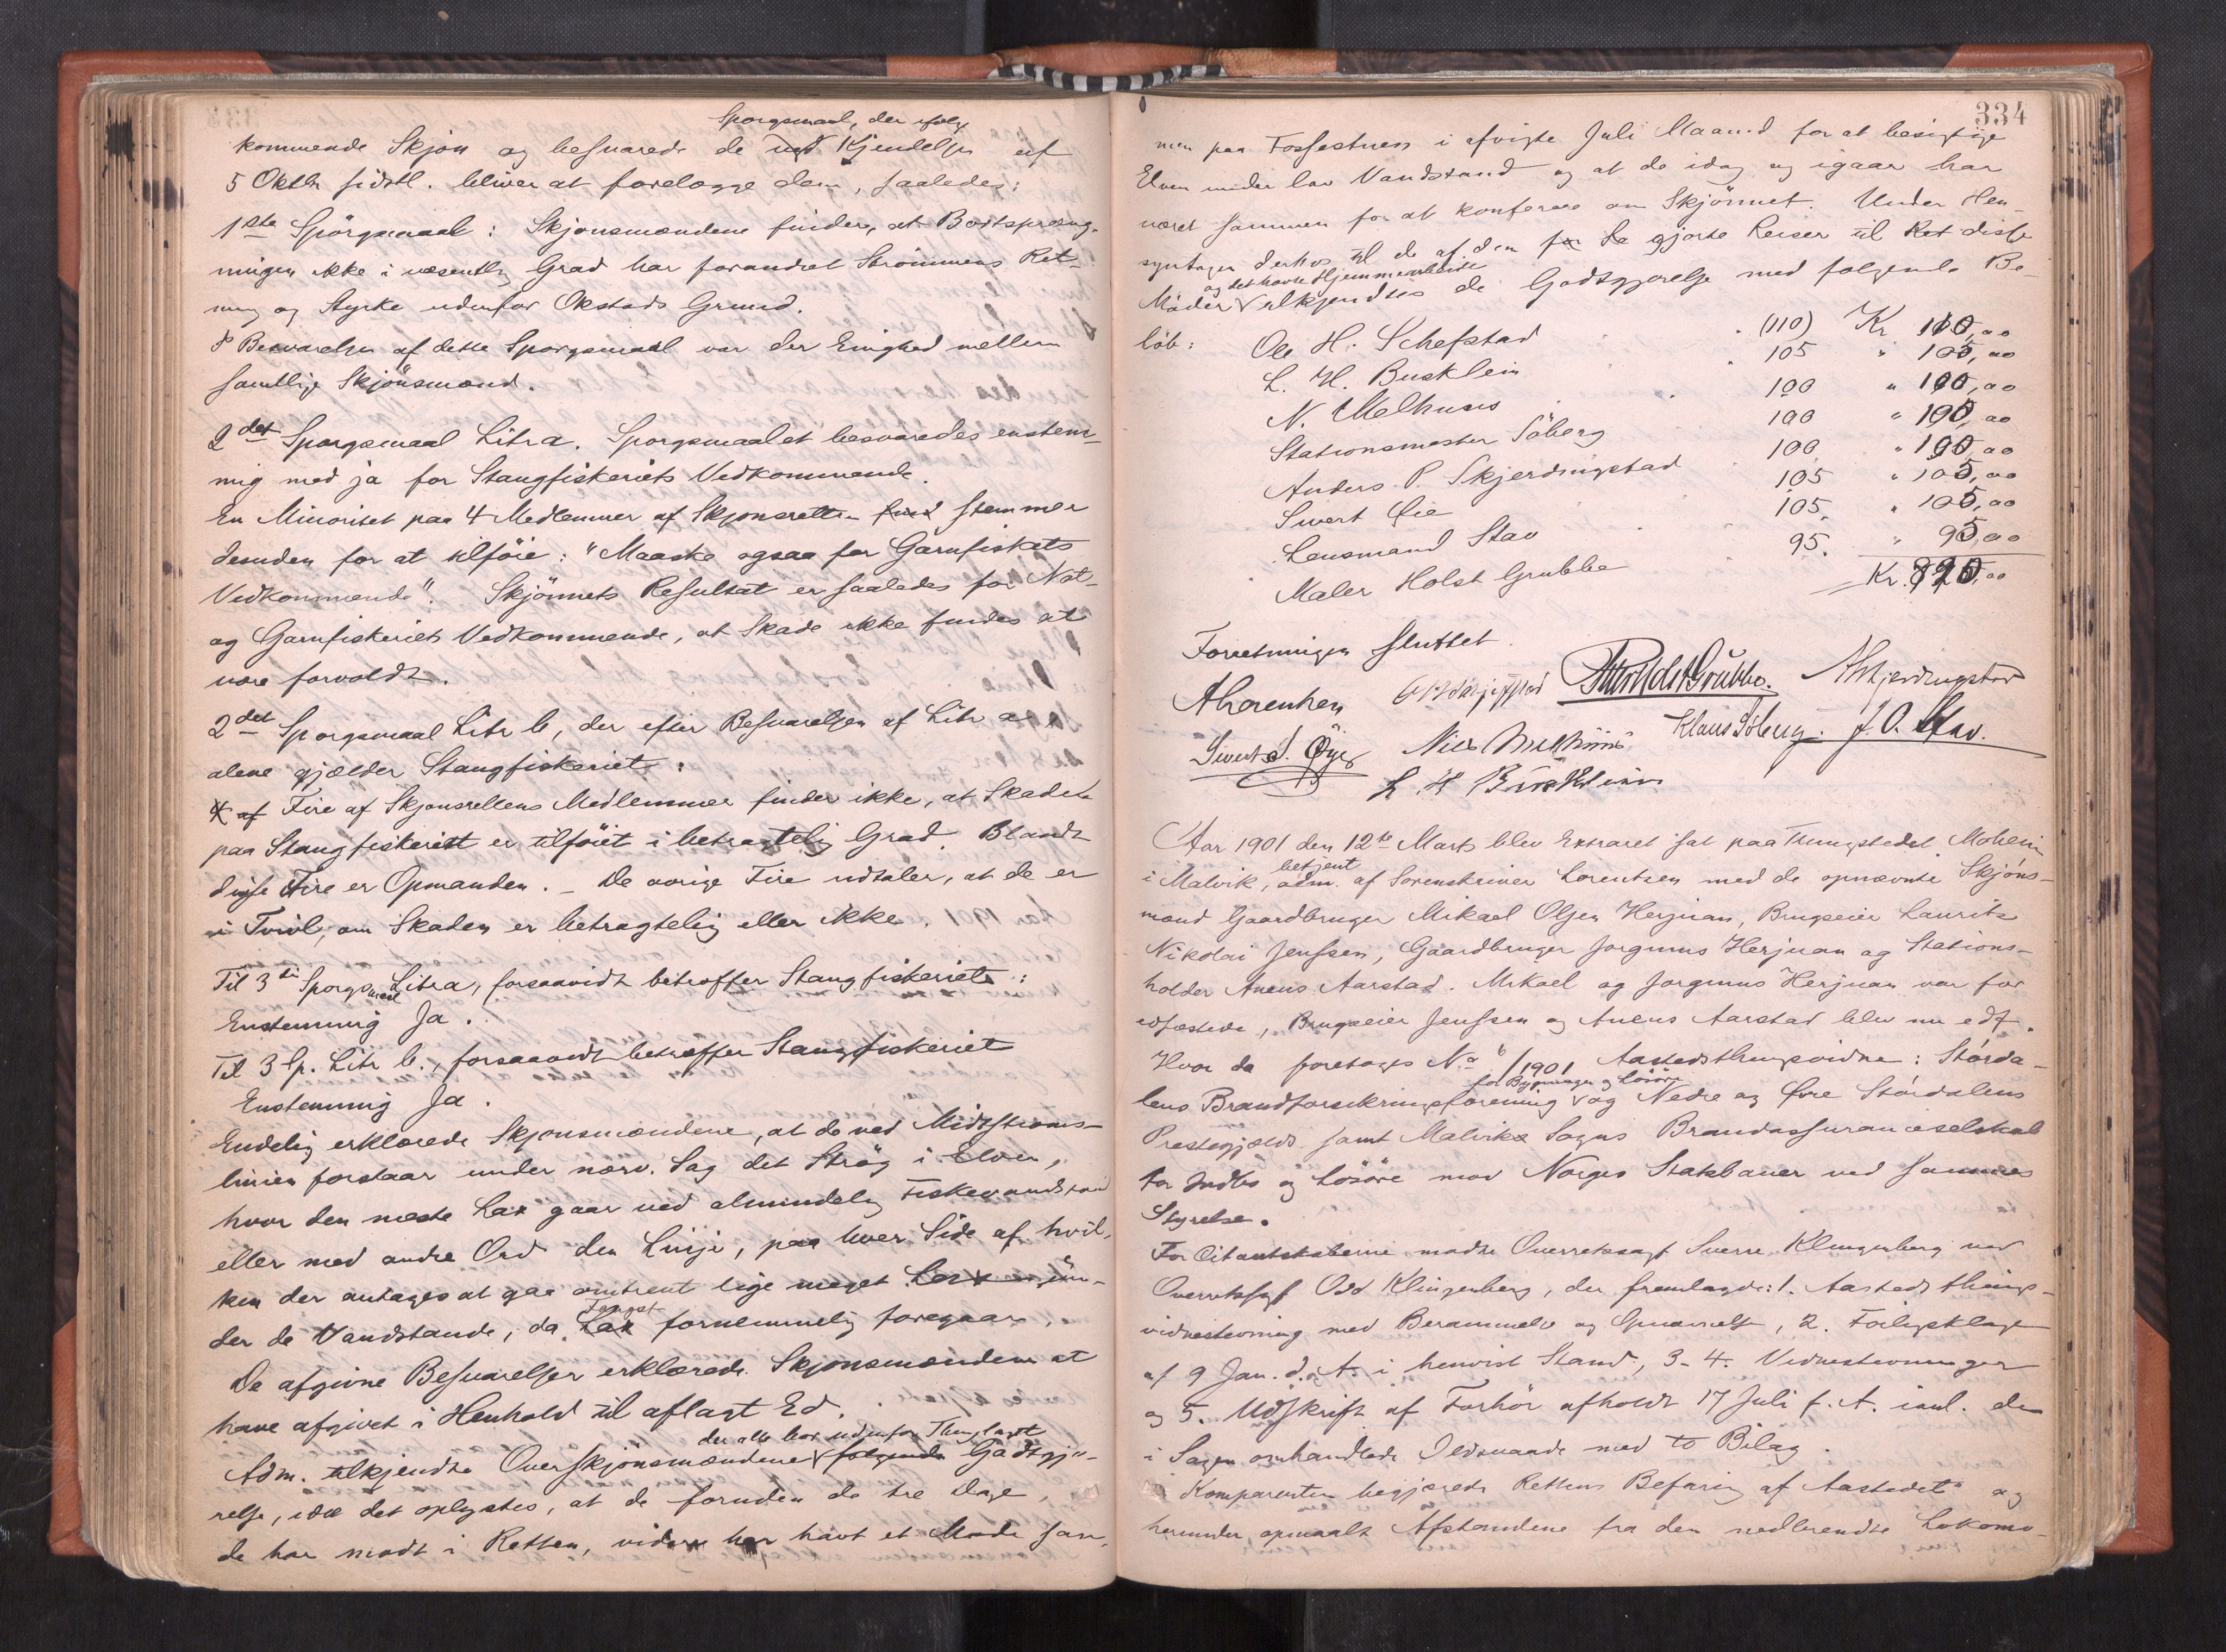 Spørgsmaal, der ifølge
kommende Skjøn og besvarede de ved Kjendelse af
5 Oktbr sidstl. bliver at forelægge dem, saaledes:
1ste Spörgsmaal: Skjønsmændene finder, at Bortspræng-
ningen ikke i væsentlig Grad har forandret Strømmens Ret-
ning og Styrke udenfor Okstads Grund.
I Besvarelsen af dette Spørgsmaal var der Enighed mellem
samtlige Skjönsmænd.
2det Spørgsmaal Litra. Spørgsmaalet besvaredes enstem-
mig med ja for Stangfiskeriets Vedkommende.
En Minoritet paa 4 Medlemmer af Skjønsretten stemmer
desuden for at tilföie: "Maaske ogsaa for Garnfiskets
Vedkommende". Skjönnets Resultat er saaledes for Not-
og Garnfiskeriets Vedkommende, at Skade ikke findes at
være forvoldt.
2det Spørgsmaal Litr b, der efter Besvarelsen af Litr a
alene gjælder Stangfiskeriet:
af Fire af Skjønsrettens Medlemmer finder ikke, at Skaden
paa Stangfiskeriet er tilföiet i betragtelig Grad. Blandt
disse Fire er Opmanden. – De øvrige Fire udtaler, at de er
i Tvivl, om Skaden er betragtelig eller ikke.
Til 3die Spørgsmaal Litra, forsaavidt betræffer Stangfiskeriet:
Enstemmig Ja.
Til 3 Sp. Litr b., forsaavidt betræffer Stangfiskeriet
Enstemmig Ja.
Endelig erklærede Skjønsmændene, at de ved Midtstrøms-
linien forstaar under nærv. Sag det Strøg i Elven,
hvor den meste Lax gaar ved almindelig Fiskevandstand
eller med andre Ord den Linje, paa hver Side af hvil-
ken der antages at gaa omtrent lige meget Lax un-
Fangst
der de Vandstande, da Lax fornemmelig foregaar.
De afgivne Besvarelser erklærede Skjønsmændene at
have afgivet i Henhold til aflagt Ed.
der alle bor udenfor Thinglaget
Adm. tilkjendte Overskjönsmændene følgende Godtgjø-
relse, idet det oplystes, at de foruden de tre Dage,
de har mødt i Retten, videre har havt et Møde sam-
334
men paa Fossestuen i afvigte Juli Maaned for at besigtige
Elven under lav Vandstand og at de idag og igaar har
været sammen for at konferere om Skjönnet. Under Hen-
syntagen derhos til de af dem gjorte Reiser til Ret disse
og det havte Hjemmearbeide
Möder tilkjendtes de Godtgjørelse med følgende Be-
löb: Ole H. Schefstad (110) Kr 110,00
L. H. Busklein 105 " 105,00
N. Melhuus 100 " 100,00
Stationsmester Söberg 100 " 100,00
Anders P. Skjerdingstad 100 " 100,00
Sivert Øie 105 " 105,00
Lensmand Stav 105. " 105,00
Maler Holst Grubbe 95. " 95,00
Kr. 820,00
Forretningen sluttet.
A Lorentzen Holst Grubbe. A Skjerdingstad
Sivert S. Øye Nils Melhuus Klaus Söberg. J. O. Stav.
L. H Busklein
Aar 1901 den 12te Marts blev Extraret sat paa Thingstedet Moheim
betjent
i Malvik, adm. af Sorenskriver Lorentzen med de opnævnte Skjöns-
mænd Gaardbruger Mikael Olsen Herjuan, Brugseier Laurits
Nikolai Jenssen, Gaardbruger Jørginus Herjuan og Stations-
holder Aneus Aarstad. Mikael og Jørginus Herjuan var for
edfæstede, Brugseier Jenssen og Aneus Aarstad blev nu edf.
Hvor da foretoges No 6/1901 Aastedsthingsvidne: Störda-
for Bygninger og Lösöre
lens Brandforsikringsforening og Nedre og Øvre Stördalens
Prestegjælds samt Malviks Sogns Brandassuranceselskab
for Indbo og Lösöre mod Norges Statsbaner ved sammes
Styrelse.
For Citantskaberne mødte Overretssagf Sverre Klingenberg ved
Overretssagf Odd Klingenberg, der fremlagde: 1. Aastedsthings-
vidnestevning med Berammelse og , 2. Forligsklage
af 9 Jan. d. A. i henvist Stand, 3-4. Vidnestevninger
og 5. Udskrift af Forhör afholdt 17 Juli f. A. den
i Sagen omhandlede Ildsvaade med to Bilag.
Komparenten begjærede Rettens Befaring af Aastedet og
herunder opmaalt Afstandene fra den nedbrendte Lokomo-